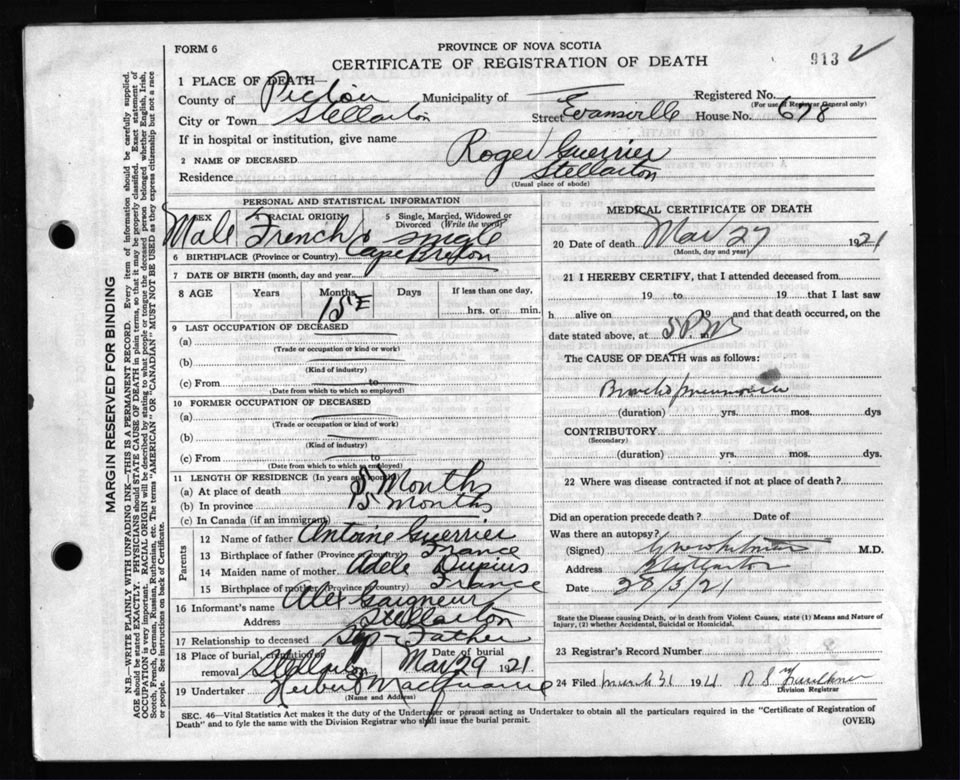 FORM 6
PROVINCE OF NOVA SCOTIA
CERTIFICATE OF REGISTRATION OF DEATH
913
1 PLACE OF DEATH—
County of Pictou Municipality of
Registered No.
(For use of Registrar General only)
City or Town Stellarton Street Evansville House No. 678
If in hospital or institution, give name
2 NAME OF DECEASED Roger Guerrier
Residence Stellarton
(Usual place of abode)
PERSONAL AND STATISTICAL INFORMATION
SEX Male
4 RACIAL ORIGIN French
5 Single, Married, Widowed or Divorced (Write the word) Single
6 BIRTHPLACE (Province or Country) Cape Breton
7 DATE OF BIRTH (month, day and year)
8 AGE Years Months Days If less than one day,
15
hrs. or min.
9 LAST OCCUPATION OF DECEASED
(a)
(Trade or occupation or kind or work)
(b)
(Kind of industry)
(c) From to
(Date from which to which so employed)
10 FORMER OCCUPATION OF DECEASED
(a)
(Trade or occupation or kind of work)
(b)
(Kind of industry)
(c) From to
(Date from which to which so employed)
11 LENGTH OF RESIDENCE (In years and months)
(a) At place of death Months
(b) In province 15 Months
(c) In Canada (if an immigrant)
Parents
12 Name of father Antoine Guerrier
13 Birthplace of father (Province or country) France
14 Maiden name of mother Adele Dupuis
15 Birthplace of mother (Province or country) France
16 Informant's name Alex Gaigneur
Address Stellarton
17 Relationship to deceased Step-Father
18 Place of burial, cremation or removal Stellarton
Date of burial Mar 29 1921
19 Undertaker Herbert
(Name and Address)
MEDICAL CERTIFICATE OF DEATH
20 Date of death Mar 27 1921
(Month, day and year)
21 I HEREBY CERTIFY, that I attended deceased from
19 to 19 that I last saw
h alive on 19 and that death occurred, on the
date stated above, at 5 P.M. m
The CAUSE OF DEATH was as follows:
Broncho pneumonia
(duration) yrs. mos. dys
CONTRIBUTORY
(Secondary)
(duration) yrs. mos. dys
22 Where was disease contracted if not at place of death?
Did an operation precede death? Date of
Was there an autopsy?
(Signed) M.D.
Address Stellarton
Date 28/3/21
State the Disease causing Death, or in death from Violent Causes, state (1) Means and Nature of
Injury, (2) whether Accidental, Suicidal or Homicidal.
23 Registrar's Record Number
24 Filed March 31 1921
Division Registrar
SEC. 46—Vital Statistics Act makes it the duty of the Undertaker or person acting as Undertaker to obtain all the particulars required in the "Certificate of Registration of
Death" and to fyle the same with the Division Registrar who shall issue the burial permit.
(OVER)
MARGIN RESERVED FOR BINDING
N.B.—WRITE PLAINLY WITH UNFADING INK—THIS IS A PERMANENT RECORD. Every item of information should be carefully supplied.
AGE should be stated EXACTLY. PHYSICIANS should STATE CAUSE OF DEATH in plain terms, so that it may be properly classified. Exact statement of
OCCUPATION is very important. RACIAL ORIGIN will be described by stating to what people or tongue the deceased person belonged whether English, Irish,
Scotch, French, German, Russian, Ruthenian, etc. The terms "AMERICAN" OR "CANADIAN" MUST NOT BE USED as they express citizenship but not a race
or people. See instructions on back of Certificate.